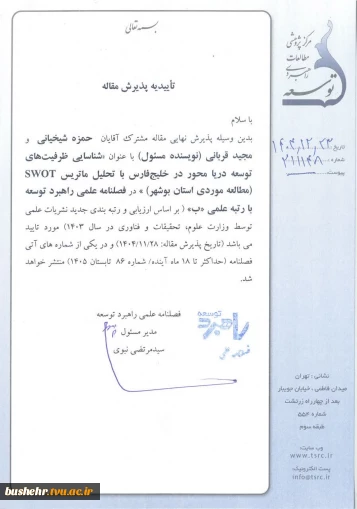 بسمه تعالی
مرکز پژوهشی
مطالعات
راهبردی
توسعه
تاریخ: ۱۴۰۴,۱۲,۲۳
شماره:
پیوست:
تأییدیه پذیرش مقاله
با سلام
بدین وسیله پذیرش نهایی مقاله مشترک آقایان حمزه شیخیانی و
مجید قربانی (نویسنده مسئول) با عنوان «شناسایی ظرفیت‌های
توسعه دریا محور در خلیج‌فارس با تحلیل ماتریس SWOT
(مطالعه موردی استان بوشهر) » در فصلنامه علمی راهبرد توسعه
با رتبه علمی «ب» ( بر اساس ارزیابی و رتبه بندی جدید نشریات علمی
توسط وزارت علوم، تحقیقات و فناوری در سال ۱۴۰۳) مورد تایید
می باشد (تاریخ پذیرش مقاله: ۱۴۰۴/۱۱/۲۸) و در یکی از شماره های آتی
فصلنامه (حداکثر تا ۱۸ ماه آینده/ شماره ۸۶ تابستان ۱۴۰۵) منتشر خواهد
شد.
فصلنامه علمی راهبرد توسعه
مدیر مسئول
سیدمرتضی نبوی
توسعه
راهبرد
فصلنامه علمی
نشانی : تهران
میدان فاطمی ، خیابان جویبار
بعد از چهارراه زرتشت
شماره ۵۵۴
طبقه سوم
وب سایت:
www.tsrc.ir
پست الکترونیک:
info@tsrc.ir
bushehr.tvu.ac.ir